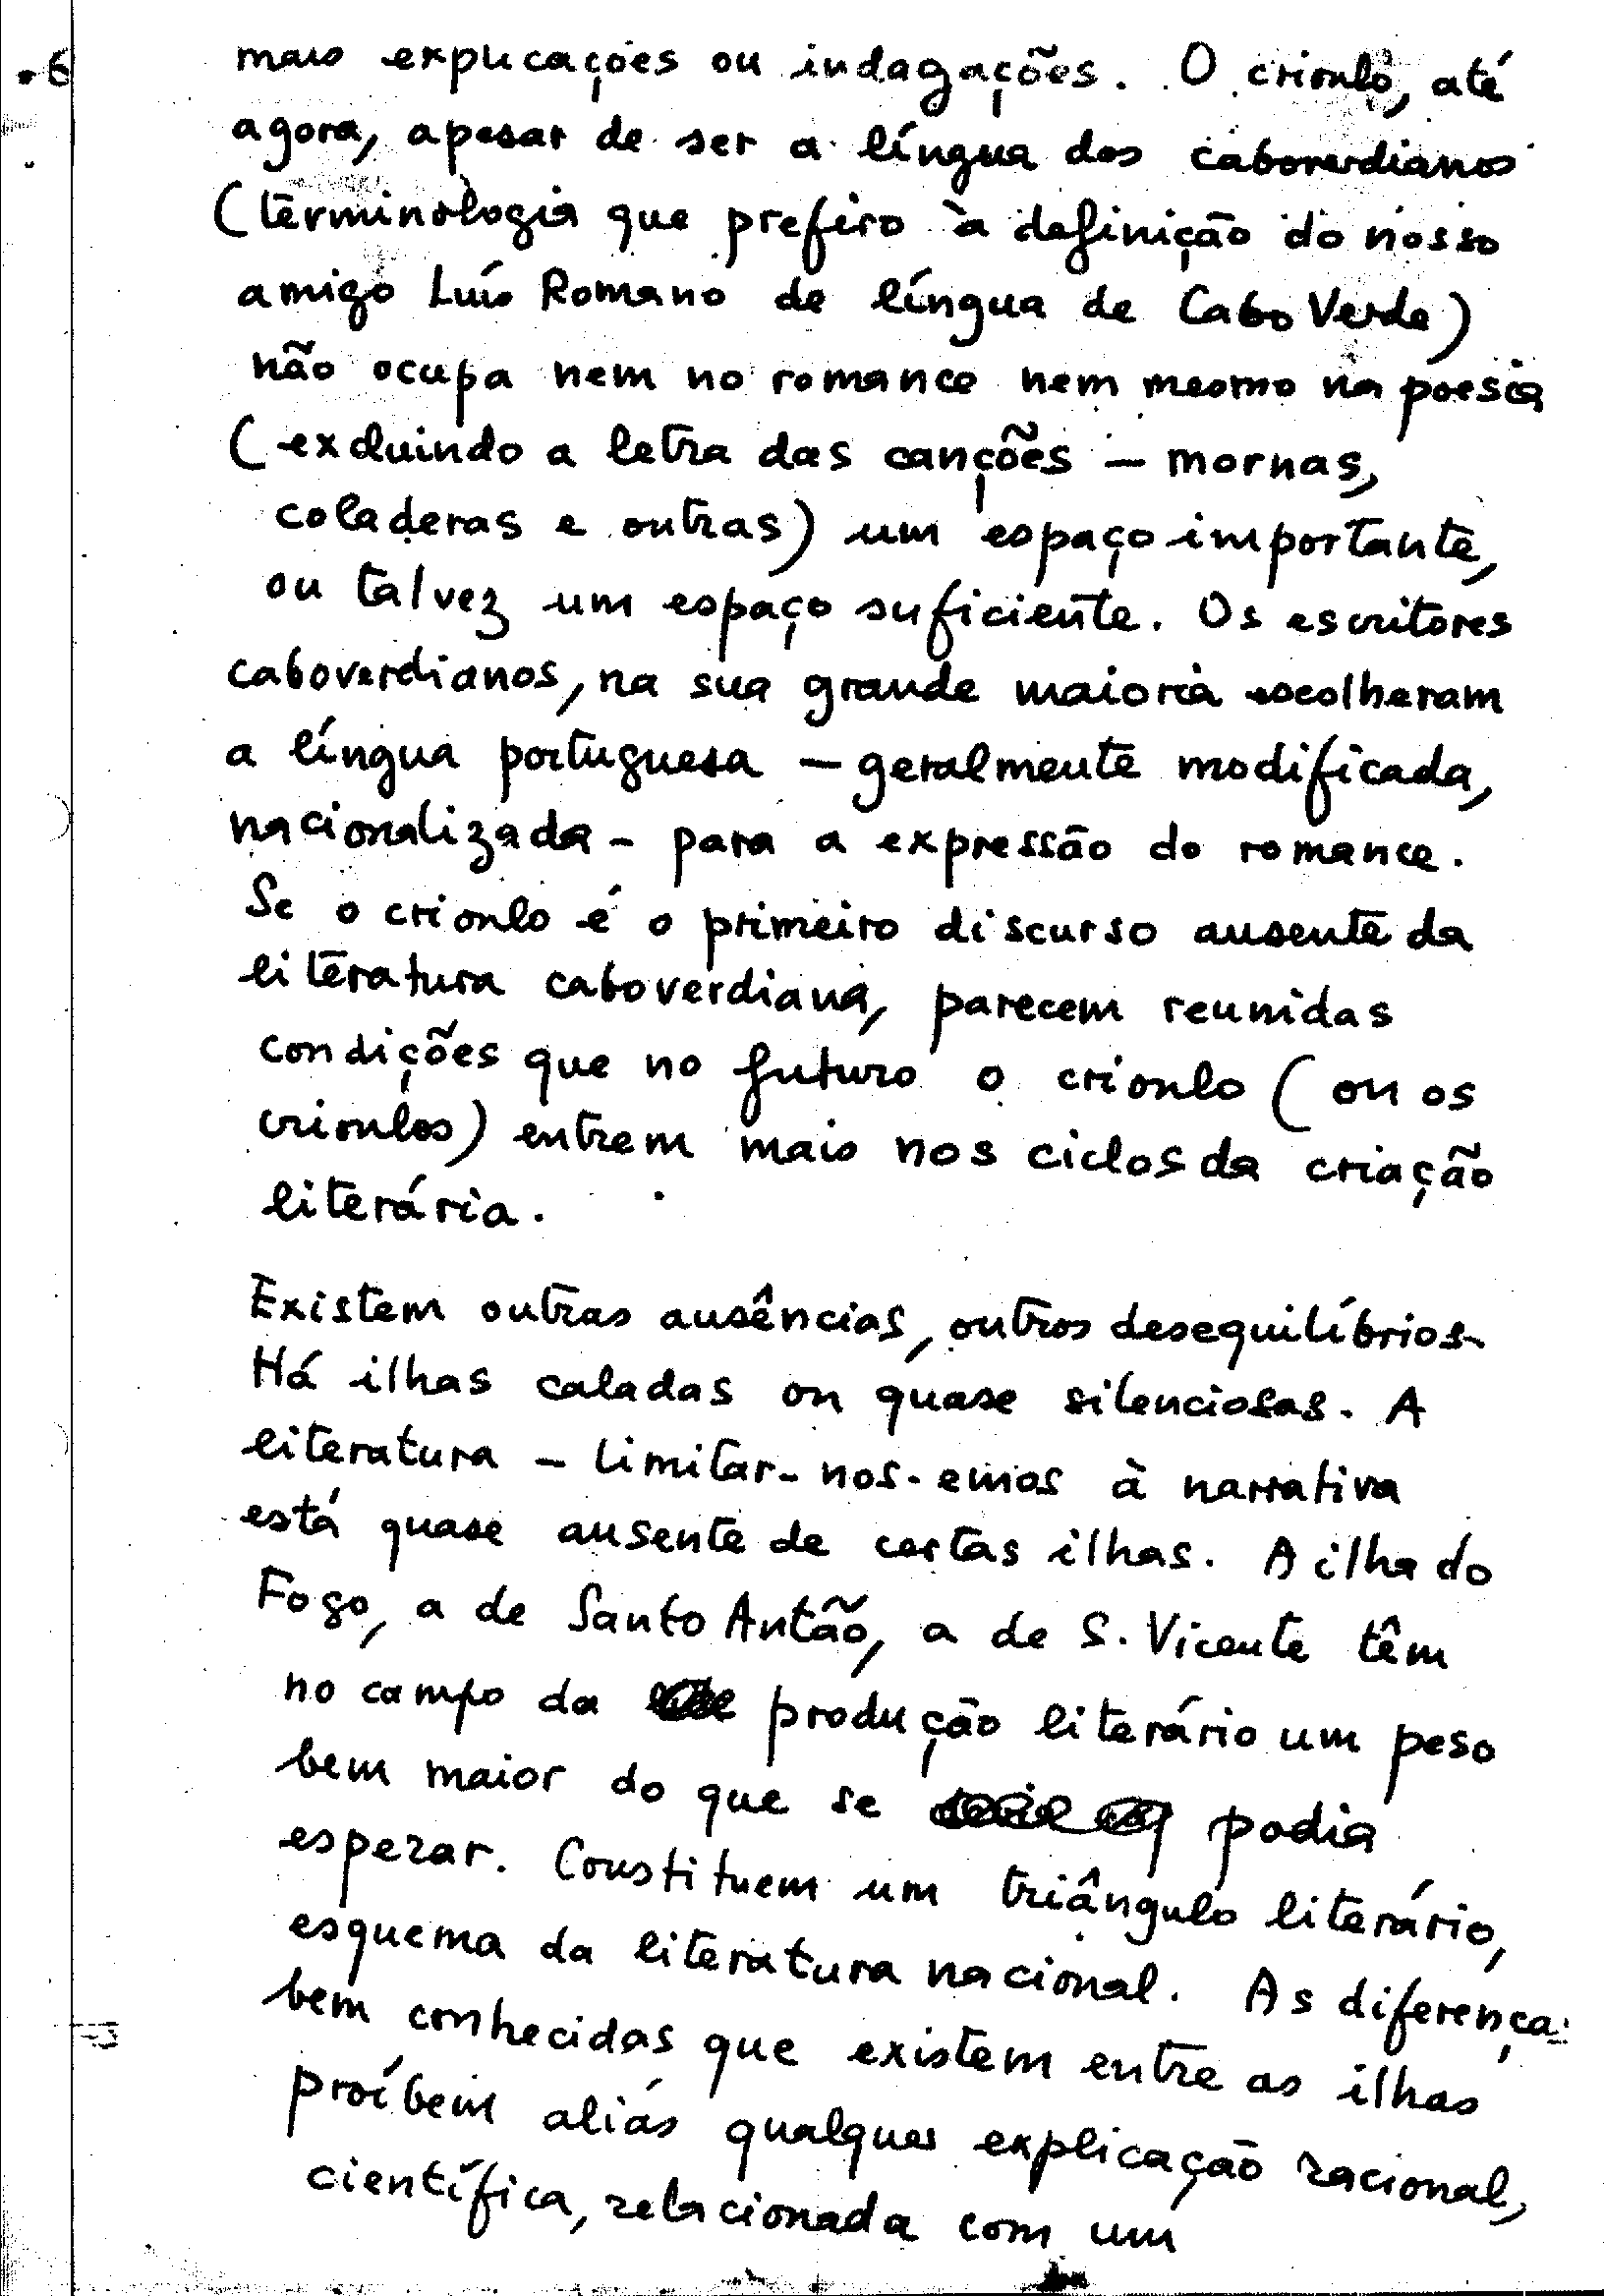 6
mais explicações ou indagações. O crioulo, até
agora, apesar de ser a língua dos caboverdianos
(terminologia que prefiro à definição do nosso
amigo Luís Romano de língua de Cabo Verde)
não ocupa nem no romance nem mesmo na poesia
(excluindo a letra das canções – mornas,
coladeras e outras) um espaço importante,
ou talvez um espaço suficiente. Os escritores
caboverdianos, na sua grande maioria escolheram
a língua portuguesa – geralmente modificada,
nacionalizada – para a expressão do romance.
Se o crioulo é o primeiro discurso ausente da
literatura caboverdiana, parecem reunidas
condições que no futuro o crioulo (ou os
crioulos) entrem mais nos ciclos da criação
literária.
Existem outras ausências, outros desequilíbrios.
Há ilhas caladas ou quase silenciosas. A
literatura – limitar-nos-emos à narrativa
está quase ausente de certas ilhas. A ilha do
Fogo, a de Santo Antão, a de S. Vicente têm
no campo da produção literário um peso
bem maior do que se podia
esperar. Constituem um triângulo literário,
esquema da literatura nacional. As diferenças
bem conhecidas que existem entre as ilhas
proíbem aliás qualquer explicação racional,
científica, relacionada com um